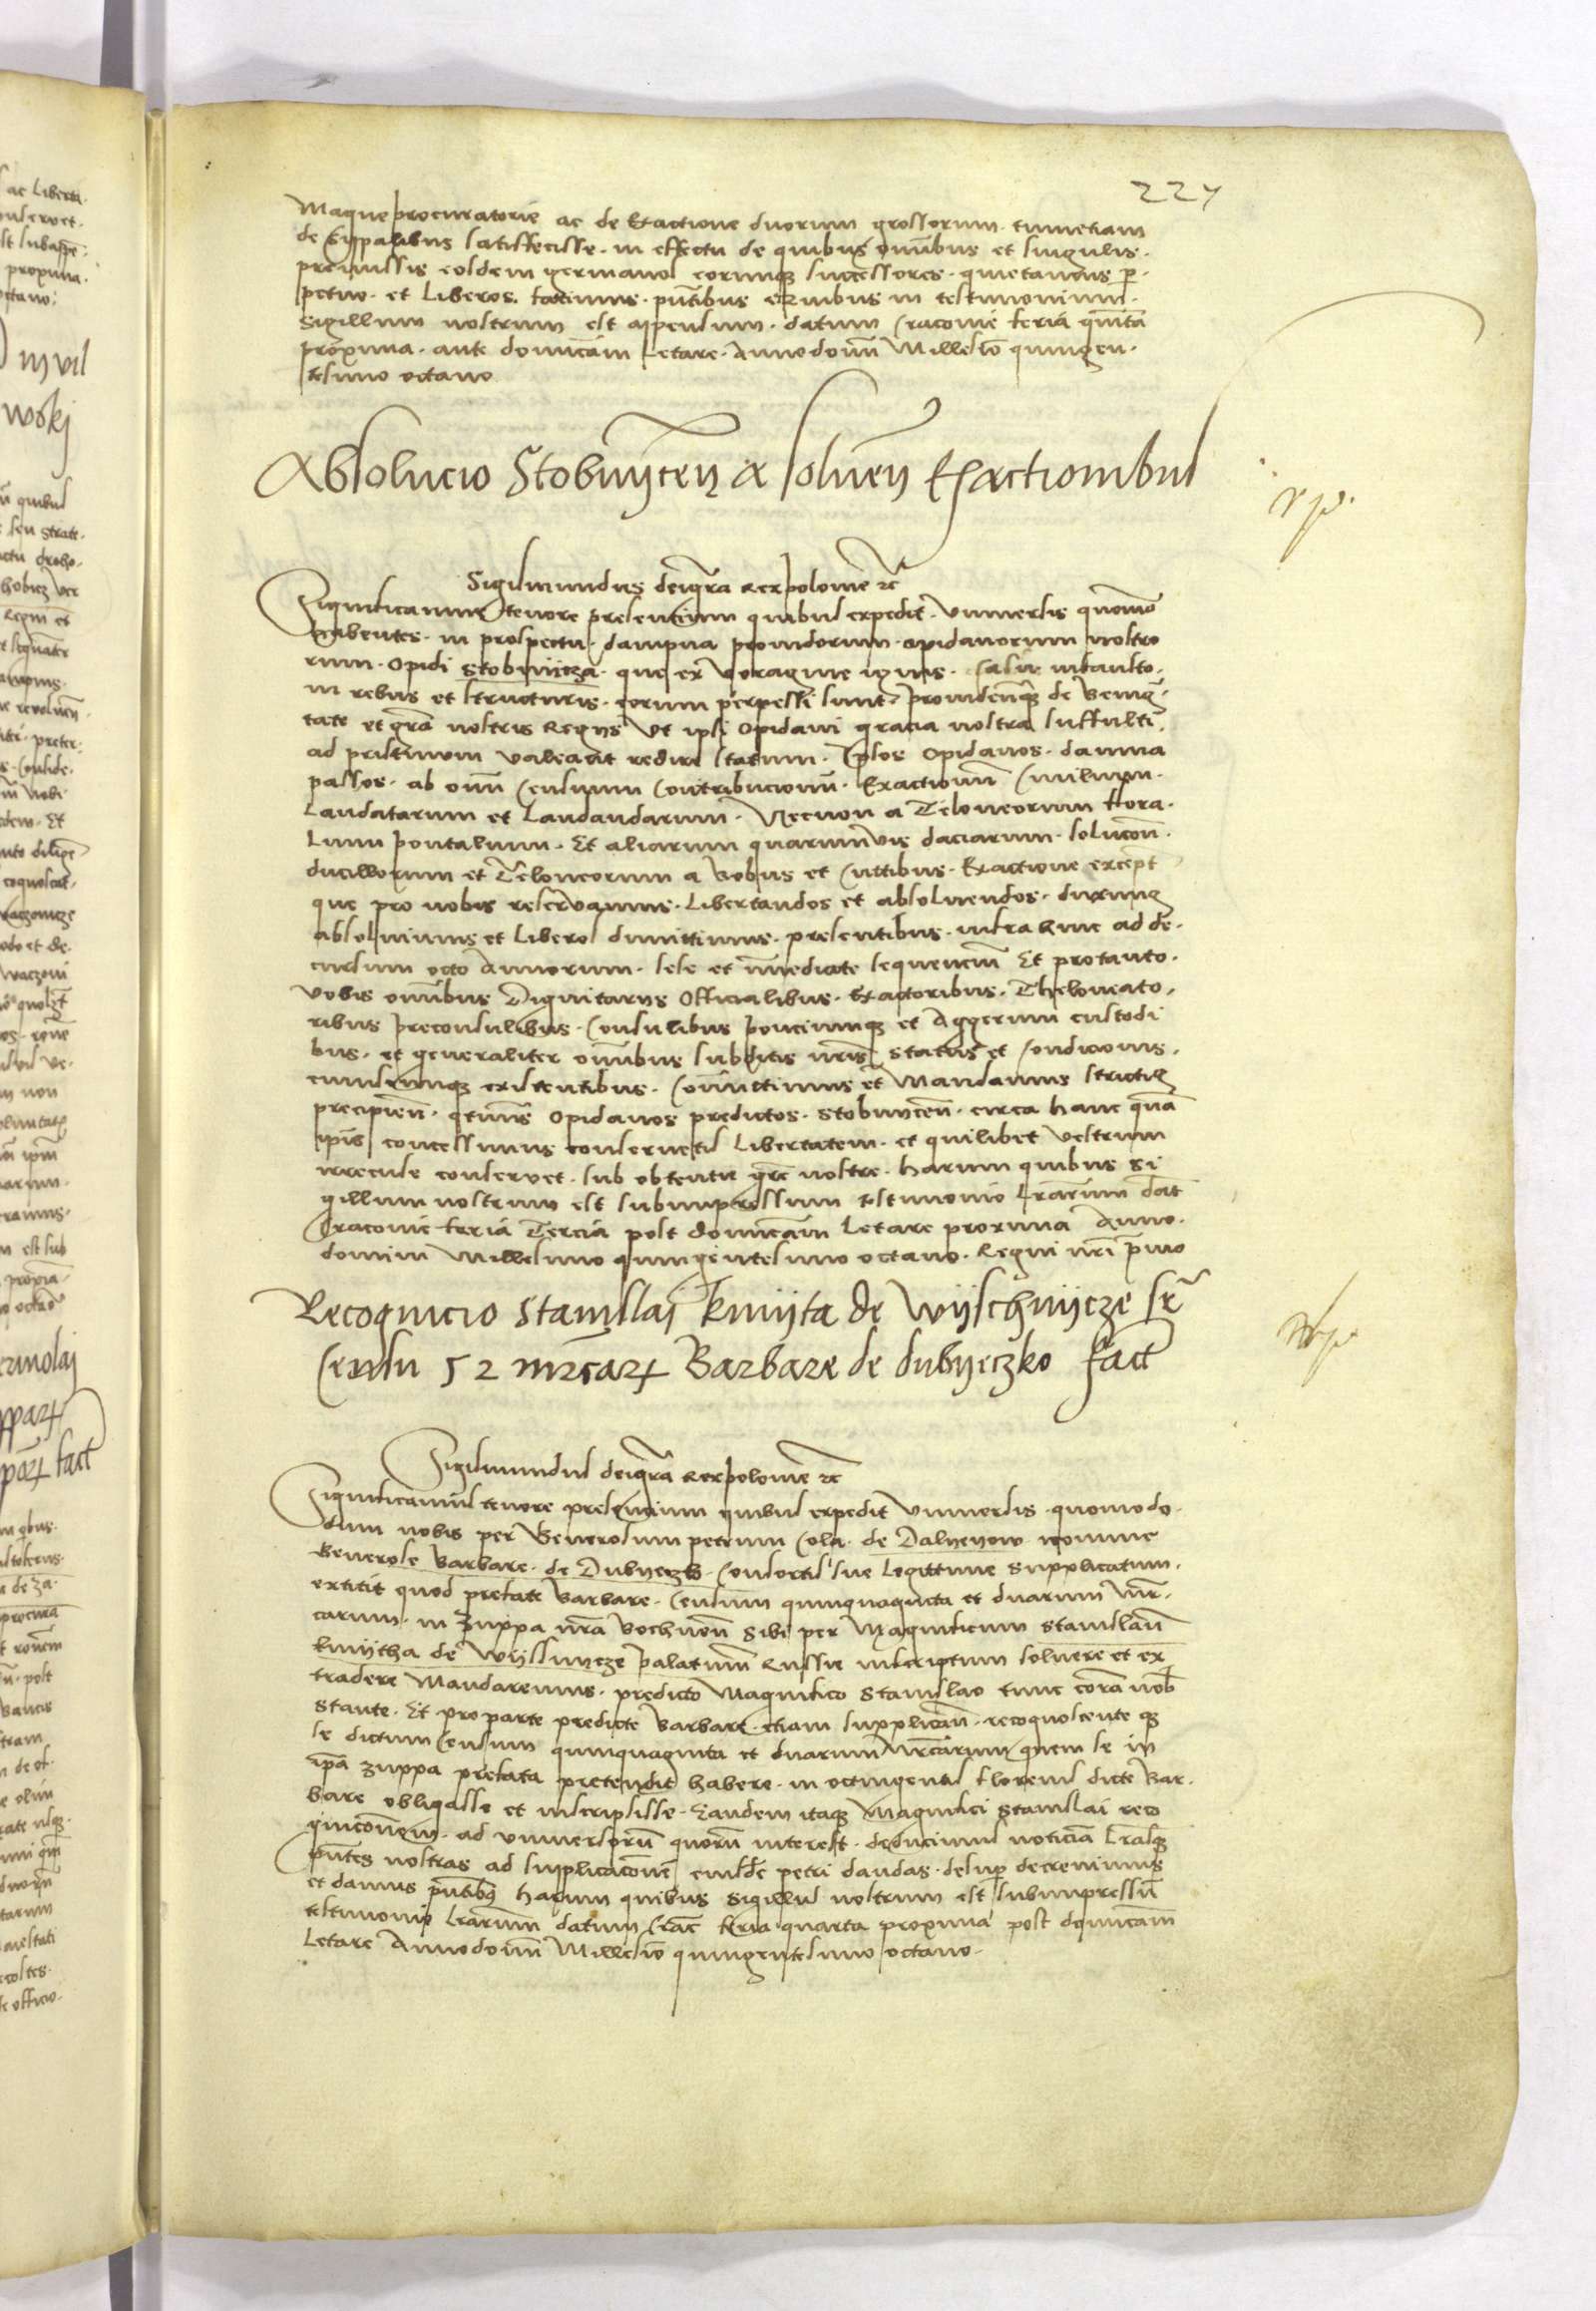 227
Maque procuratorie ac de Exactione duorum grossorum tum etiam
de Cypalibus satisfecisse in effectu de quibus omĩbus et singulis
premissis eosdem germanos eorumqȝ successores quietamus p̱
petuo et Liberos facimus pn̄tibus quibus in testimonium
Sigillum nostrum est appensum datum Cracovie feria quīta
proxima ante dominicā Letare Anno domī Millesīo quingen
tesimo octavo
Absolucio Stobnÿcen̄ a solucn̄ Exactionibus
rp̱
Sigismundus dei gr̄a Rex polonie ꝛc
Significamus tenore presentium quibus expedit Universis quomo
habentes in prospectu dampna providorum opidanorum nostro
rum Opidi Stobnicza que ex voragine ignis casu infausto
in rebus et structuris eorum perpessi sunt providendūqȝ de benig
tate et gr̄a nostris Regijs Ut ipsi Opidani gracia nostra suffulti
ad pristinum valeant redire statum Ipsos Opidanos damna
passos ab omī Censuum Contribucionū Exactionū Civilium
Laudatarum et Laudandarum Necnon a Teloneorum fora
Lium pontalium Et aliarum quarumvis daciarum solucōn
ducillorum et Teloneorum a Bobus et Cuttibus Exactione except
que pro nobis reservamus Libertandos et absolvendos duximꝰ
absolvimus et Liberos dimittimus presentibus infra hinc ad de
cursum octo Annorum sese et īmediate sequencīu Et protanto
vobis omībus Dignitarijs Officialibus Exactoribus Theloneato
ribus preconsulibus Consulibus ponciumqȝ et Aggerum custodi
bus et generaliter omībus subditis nr̄is status et Condicionis
cuiuscumqȝ existentibus Comīttimus et Mandamus strictiꝰ
precipien̄ qtinꝰ Opidanos predictos Stobnicen̄ circa hanc quā
ipīs concessimus conservetis Libertatem et quilibet vestrum
irrecuse conservet sub obtentu gr̄e nostre harum quibus Si
gillum nostrum est subimpressum testimonio Lr̄arum dat̄
Cracovie feria Tercia post dominicā Letare proxima Anno
domini Millesimo quingentesimo octavo Regni nr̄i p̄mo
Recognicio Stanislai kmijta de Wijschnijcze sr̄
Censu 52 mr̄carꝝ Barbare de dubyeczko fact̄
rp̱
Sigismundus dei gr̄a Rex polonie ꝛc
Significamus tenore presencium quibus expedit Universis quomodo
dum nobis per Generosum petrum Cola de Dalyeyow nomine
Generose Barbare de Dubyeczko Consortis sue Legittime supplicatum
extitit quod prefate Barbare Censum quinquaginta et duarum Mr̄
carum in Zuppa nr̄a Bochnen̄ Sibi per Magnificum Stanislaū
kmijtha de Wijssnycze palatinū Russie inscriptum solvere et ex
tradere Mandaremus predicto Magnifico Stanislao tunc corā nob̄
Stante Et pro parte predicte Barbare etiam supplicān recognoscente qȝ
se dictum Censum quinquaginta et duarum Mr̄carum quem se in
ip̄a Zuppa prefata pretendit habere in octingentis florenis dicte Bar
bare obligasse et inscripsisse Eandem itaqȝ Magnifici Stanislai reco
gnicōnem ad universorū quorū interest deducimus noticiā Lr̄asqȝ
pn̄tes nostras ad supplicacōnē eiusdē petri dandas desup̱ decrevimus
et damus pn̄tibꝰ harum quibus Sigillū nostrum est subimpressū
testimonio Lr̄arum datum Crac̄ feria quarta proxima post dominicam
Letare Anno domī Millesīo quingentesimo octavo